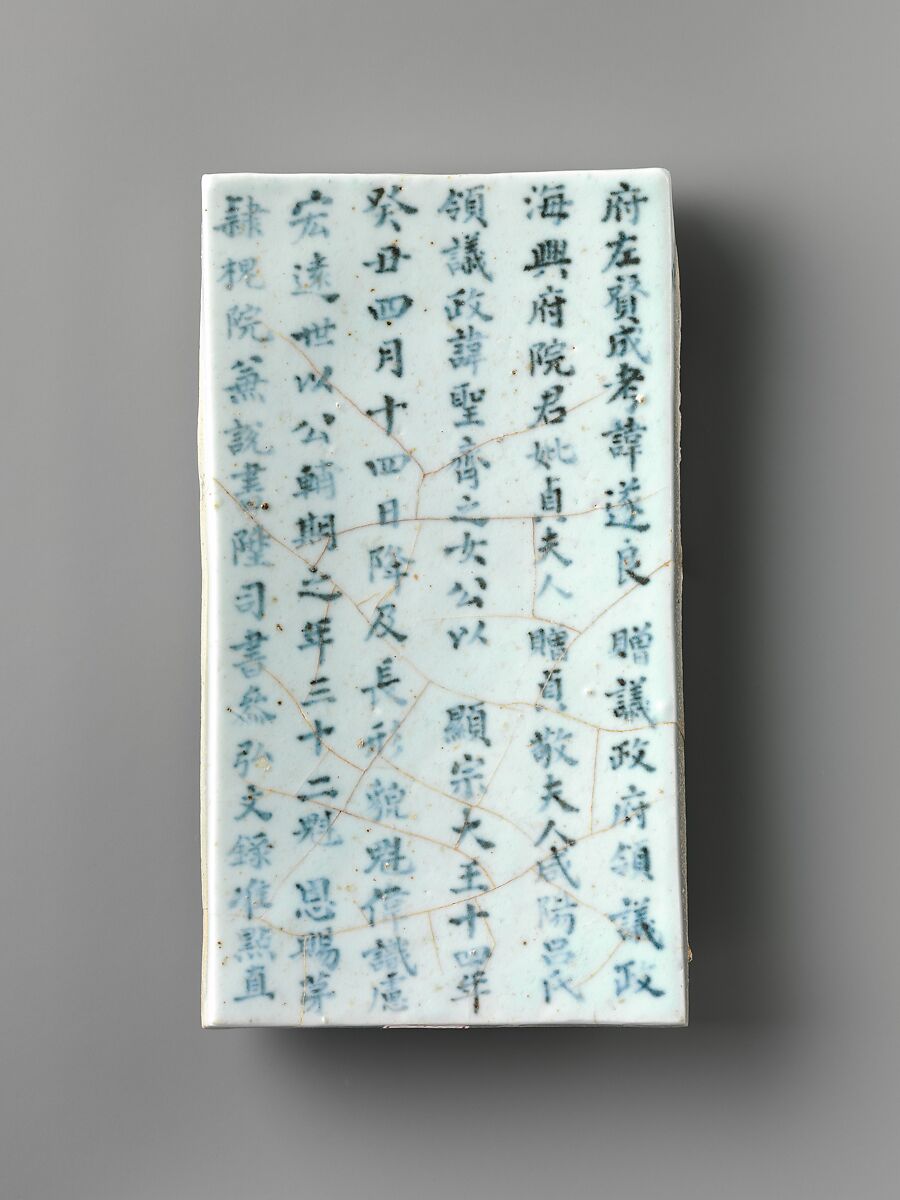 府左賛成考諱遂良 贈議政府領議政
海興府院君妣貞夫人 贈貞敬夫人咸陽呂氏
領議政諱聖齊之女公以 顯宗大王十四年
癸丑四月十四日降及長形貌魁偉識慮
宏遠世以公輔期之年三十二魁 恩賜第
隷槐院兼說書陞司書叅弘文錄准點直